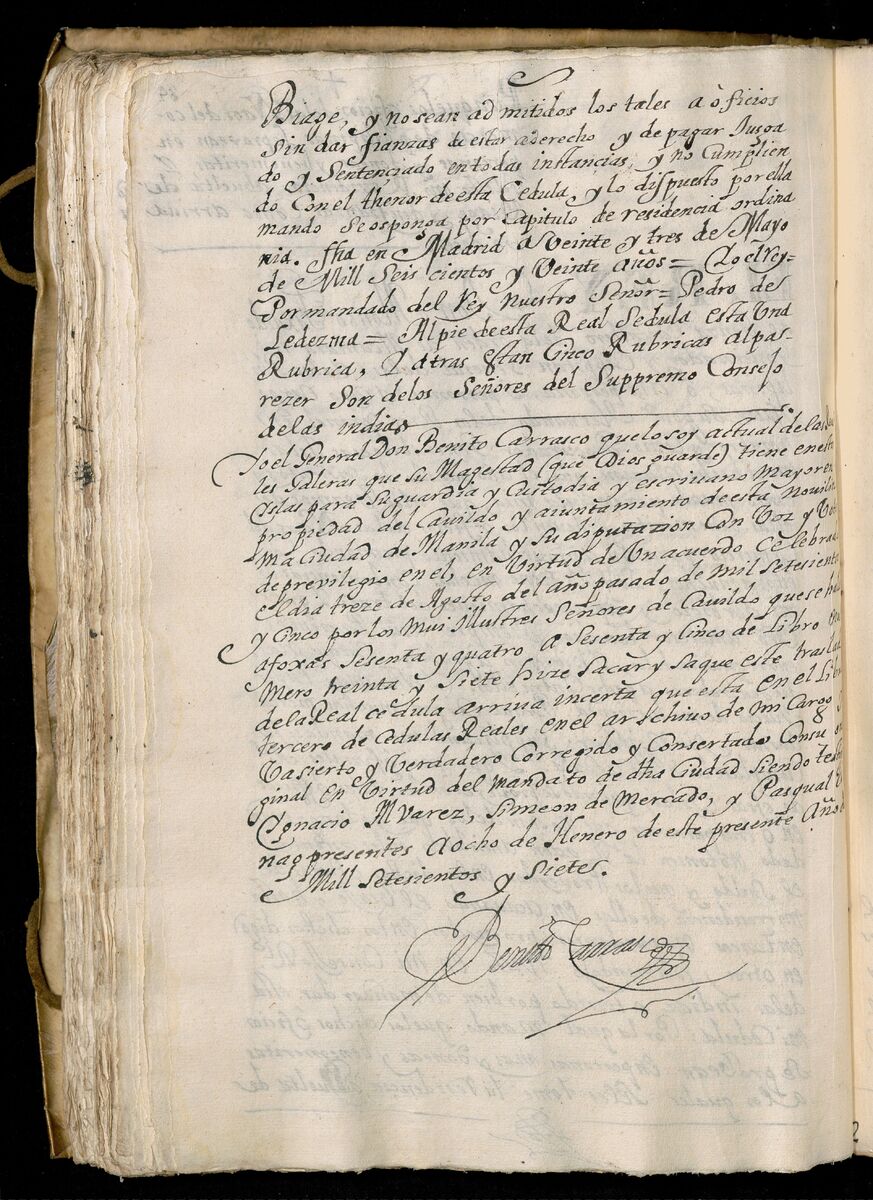 Biage, y no sean admitidos los tales a oficios
Sin dar fianzas de estar aderecho y de pagar Jusga
do y Sentençiado entodas insttancias, y no Cumplien
do Con el thenor de esta Cedula, y lo dispuesto por ella
mando Se osponga por Capitulo de residencia ordina
ria. ffha en Madrid a Veinte y tres de Mayo
de Mill Seis cientos y Veinte años = Yo el Rey =
Por mandado del Rey Nuestro Señor = Pedro de
Ledezma = Al pie de esta Real Sedula esta Una
Rubrica, Y atras estan Cinco Rubricas al pa-
rezer Son delos Señores del Suppremo Consejo
delas indias
Yo el General Don Benito Carrasco que lo soy actual de las
les Galeras que su Magestad (que Dios guarde) tiene en esta
Yslas para Su guardia y Custodia y escrivano Mayor en
propiedad del Cavildo y aiuntamiento de esta Novilis
ma Ciudad de Manila y Su diputazion Con Voz y Vot
de previlegio en el, en Virtud de Un acuerdo Celebra
el dia treze de Agosto del año pasado de mil Setesient
y Cinco por los Mui Illustres Señores de Cavildo que se ha
afoxas Sesenta y quatro a Sesenta y Cinco de Libro
Mero treinta y Siete hize Sacar y saque este tras
de la Real cedula arriva incerta que esta en el Lib
tercero de Cedulas Reales en el archivo de mi Cargo
Va sierto y Verdadero Corregido y Consertado Con su
ginal en Virtud del Mandato de dha Ciudad Siendo te
Ygnacio Alvarez, Simeon de Mercado, y Pasqual
nao presentes a ocho de Henero de este presente Año
Mill Setesientos y Siete.
Benito Carrasco